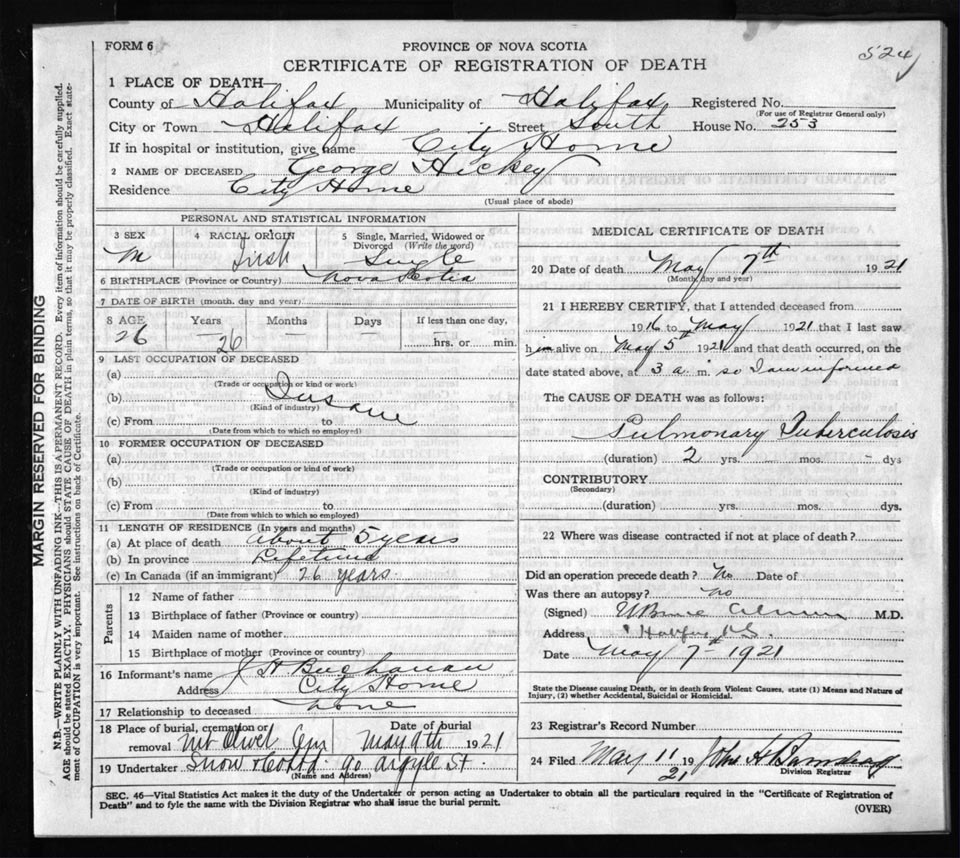 FORM 6
PROVINCE OF NOVA SCOTIA
CERTIFICATE OF REGISTRATION OF DEATH
524
1 PLACE OF DEATH
County of Halifax Municipality of Halifax Registered No.
(For use of Registrar General only)
City or Town Halifax Street South House No. 253
If in hospital or institution, give name City Home
2 NAME OF DECEASED George Hickey
Residence City Home
(Usual place of abode)
PERSONAL AND STATISTICAL INFORMATION
3 SEX 4 RACIAL ORIGIN 5 Single, Married, Widowed or Divorced (Write the word)
M Irish Single
6 BIRTHPLACE (Province or Country) Nova Scotia
7 DATE OF BIRTH (month, day and year)
8 AGE Years Months Days If less than one day,
26 26 – – hrs. or min.
9 LAST OCCUPATION OF DECEASED
(a)
(Trade or occupation or kind or work)
(b) Insane
(Kind of industry)
(c) From to
(Date from which to which so employed)
10 FORMER OCCUPATION OF DECEASED
(a)
(Trade or occupation or kind of work)
(b)
(Kind of industry)
(c) From to
(Date from which to which so employed)
11 LENGTH OF RESIDENCE (In years and months)
(a) At place of death about 5 years
(b) In province Lifetime
(c) In Canada (if an immigrant) 26 years
Parents
12 Name of father
13 Birthplace of father (Province or country)
14 Maiden name of mother
15 Birthplace of mother (Province or country)
16 Informant's name J H Buchanan
Address City Home
17 Relationship to deceased none
18 Place of burial, cremation or removal Mt Olivet Cem
Date of burial May 9th 1921
19 Undertaker Snow & Co Ltd. 90 Argyle St.
(Name and Address)
MEDICAL CERTIFICATE OF DEATH
20 Date of death May 7th 1921
(Month, day and year)
21 I HEREBY CERTIFY, that I attended deceased from
1916 to May 1921 that I last saw
him alive on May 5th 1921 and that death occurred, on the
date stated above, at 3 a. m. so I am informed
The CAUSE OF DEATH was as follows:
Pulmonary Tuberculosis
(duration) 2 yrs. mos. - dys
CONTRIBUTORY
(Secondary)
(duration) yrs. mos. dys.
22 Where was disease contracted if not at place of death?
Did an operation precede death? no Date of
Was there an autopsy? no
(Signed) Bruce M.D.
Address Halifax N.S.
Date May 7th 1921
State the Disease causing Death, or in death from Violent Causes, state (1) Means and Nature of
Injury, (2) whether Accidental, Suicidal or Homicidal.
23 Registrar's Record Number
24 Filed May 11 1921 John H
Division Registrar
SEC. 46—Vital Statistics Act makes it the duty of the Undertaker or person acting as Undertaker to obtain all the particulars required in the "Certificate of Registration of
Death" and to fyle the same with the Division Registrar who shall issue the burial permit.
(OVER)
MARGIN RESERVED FOR BINDING
N.B.—WRITE PLAINLY WITH UNFADING INK—THIS IS A PERMANENT RECORD. Every item of information should be carefully supplied.
AGE should be stated EXACTLY. PHYSICIANS should STATE CAUSE OF DEATH in plain terms, so that it may be properly classified. Exact state-
ment of OCCUPATION is very important. See instructions on back of Certificate.